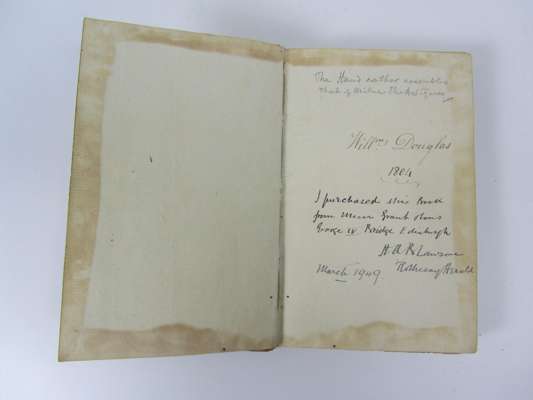 The Hand rather resembles
that of
Will^m Douglas
1804
I purchased this book
from Messrs Grant & Sons
George IV Bridge Edinburgh
H A B Lawson
March 1949 Rothesay Herald